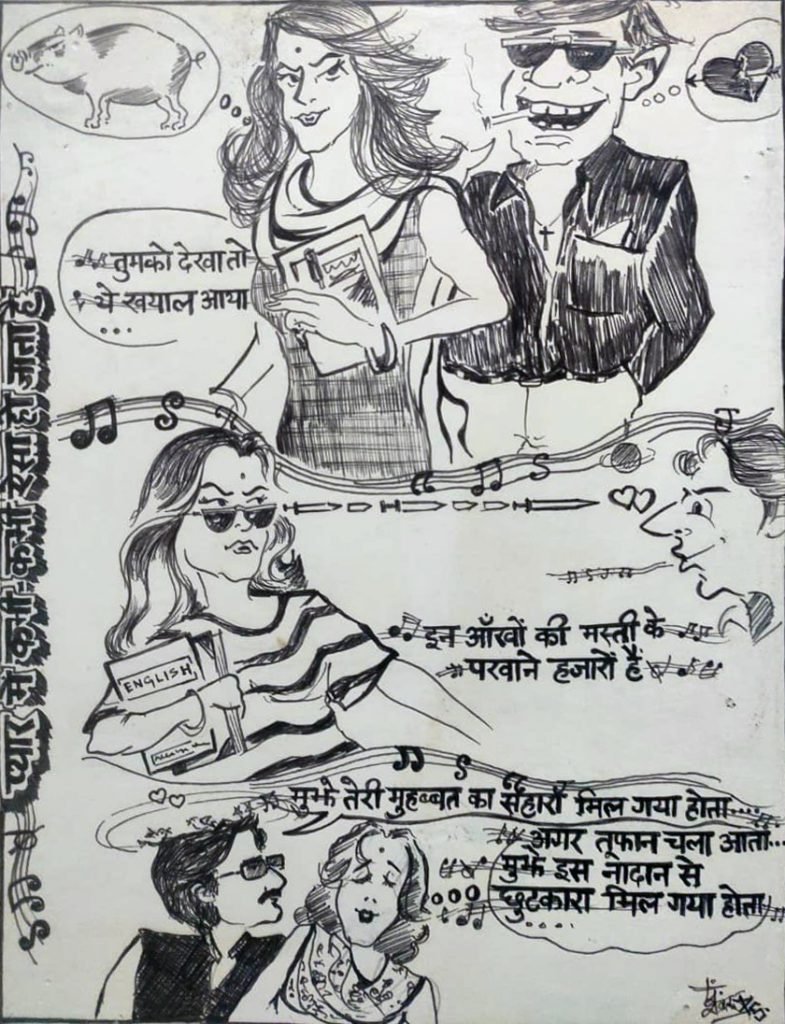 प्यार में कभी-कभी ऐसा हो जाता है
तुमको देखा तो
ये खयाल आया
...
ENGLISH
इन आँखों की मस्ती के
परवाने हजारों हैं
मुझे तेरी मुहब्बत का सहारा मिल गया होता....
अगर तूफान चला आता...
मुझे इस नादान से
छुटकारा मिल गया होता
....